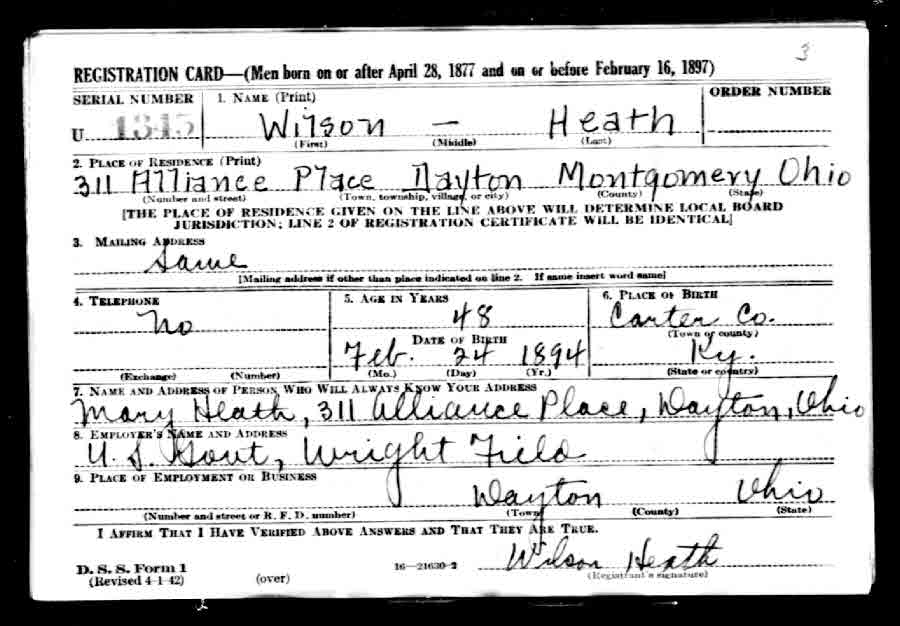 3
REGISTRATION CARD—(Men born on or after April 28, 1877 and on or before February 16, 1897)
SERIAL NUMBER
1. NAME (Print)
ORDER NUMBER
U 1345
Wilson — Heath
(First) (Middle) (Last)
2. PLACE OF RESIDENCE (Print)
311 Alliance Place Dayton Montgomery Ohio
(Number and street) (Town, township, village, or city) (County) (State)
[THE PLACE OF RESIDENCE GIVEN ON THE LINE ABOVE WILL DETERMINE LOCAL BOARD
JURISDICTION; LINE 2 OF REGISTRATION CERTIFICATE WILL BE IDENTICAL]
3. MAILING ADDRESS
Same
[Mailing address if other than place indicated on line 2. If same insert word same]
4. TELEPHONE
5. AGE IN YEARS
6. PLACE OF BIRTH
No
48
Carter Co.
(Town or county)
DATE OF BIRTH
Feb. 24 1894
Ky.
(Exchange) (Number)
(Mo.) (Day) (Yr.)
(State or country)
7. NAME AND ADDRESS OF PERSON WHO WILL ALWAYS KNOW YOUR ADDRESS
Mary Heath, 311 Alliance Place, Dayton, Ohio
8. EMPLOYER'S NAME AND ADDRESS
U. S. Govt, Wright Field
9. PLACE OF EMPLOYMENT OR BUSINESS
Dayton Ohio
(Number and street or R. F. D. number) (Town) (County) (State)
I AFFIRM THAT I HAVE VERIFIED ABOVE ANSWERS AND THAT THEY ARE TRUE.
Wilson Heath
D. S. S. Form 1
(Revised 4-1-42) (over) 16—21630-2 (Registrant's signature)